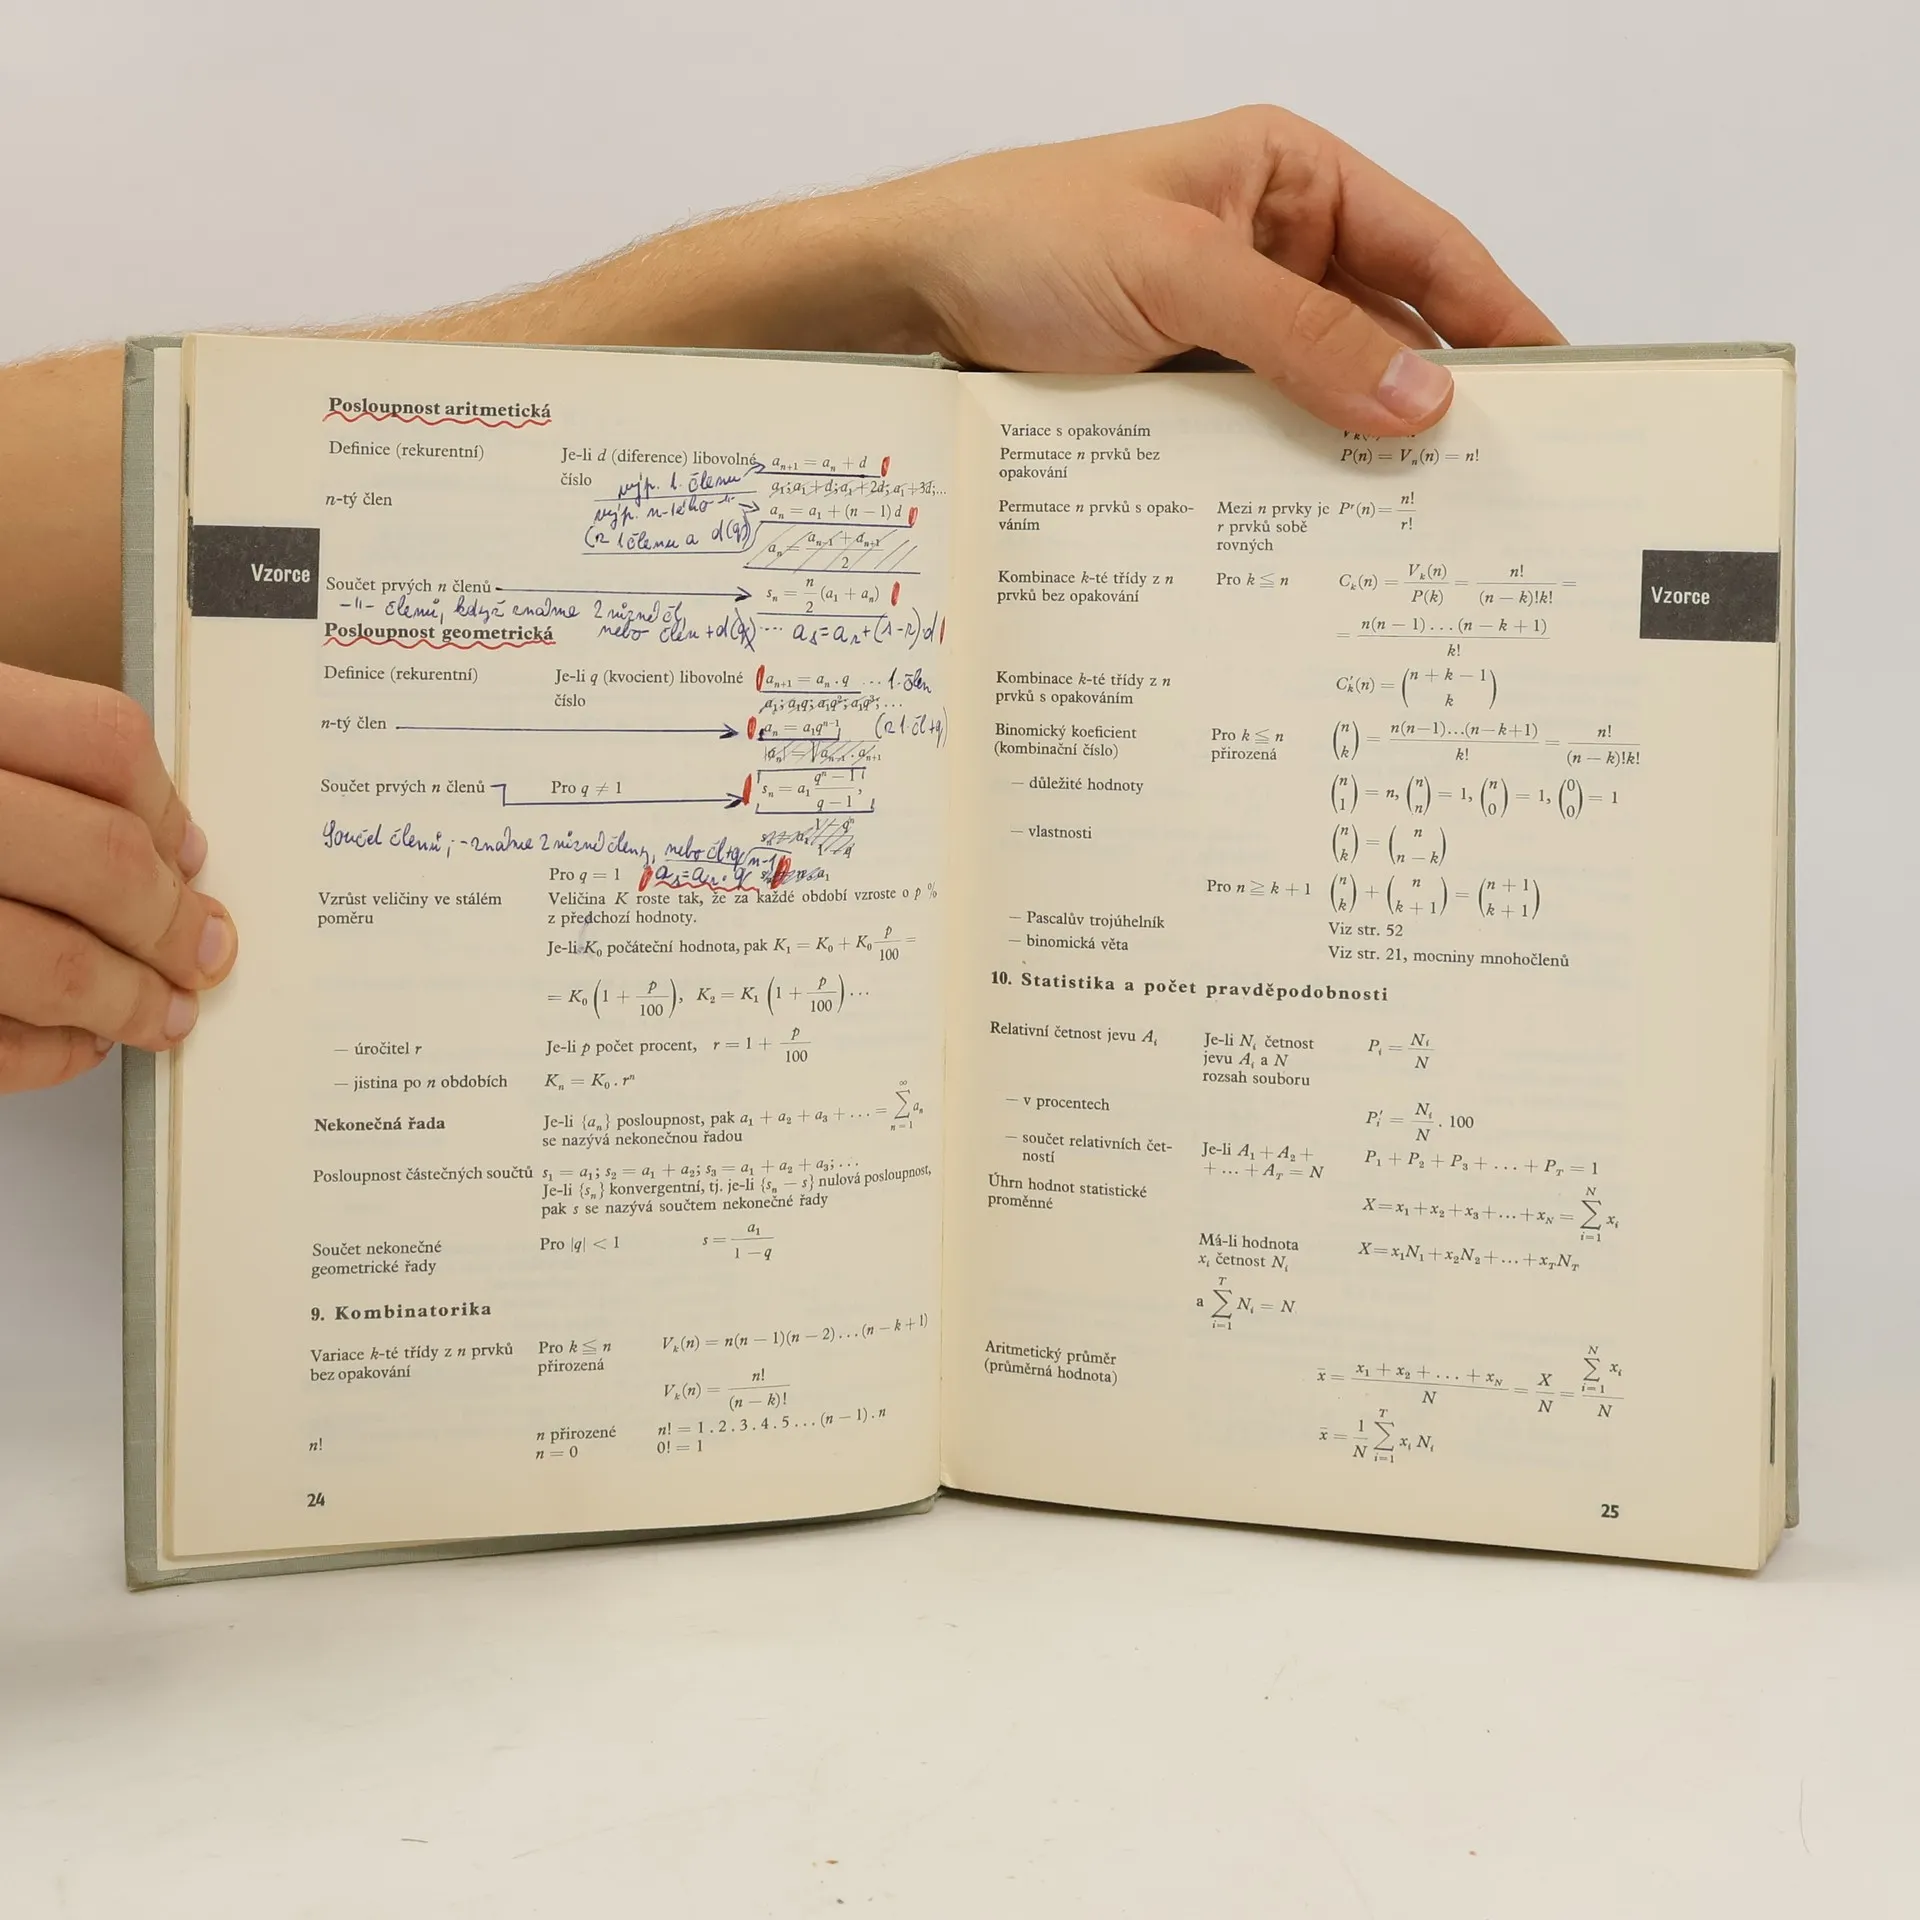 Posloupnost aritmetická
Definice (rekurentní) Je-li d (diference) libovolné číslo aₙ₊₁ = aₙ + d
výp. 1. členu a₁; a₁ + d; a₁ + 2d; a₁ + 3d; ...
n-tý člen výp. n-tého -"- aₙ = a₁ + (n − 1) d
(z 1 členu a d(q)) aₙ = (aₙ₋₁ + aₙ₊₁)/2
Vzorce
Součet prvých n členů sₙ = n/2 (a₁ + aₙ)
-"- členů, když známe 2 různé čl,
nebo člen + d(q) ... aₛ = aᵣ + (s − r)·d
Posloupnost geometrická
Definice (rekurentní) Je-li q (kvocient) libovolné číslo aₙ₊₁ = aₙ . q ... 1. člen
a₁; a₁q; a₁q²; a₁q³; ...
n-tý člen aₙ = a₁qⁿ⁻¹ (z 1. čl + q)
|aₙ| = √(aₙ₋₁ . aₙ₊₁)
Součet prvých n členů Pro q ≠ 1 sₙ = a₁ (qⁿ − 1)/(q − 1),
Součet členů; - známe 2 různé členy, nebo čl + q
Pro q = 1
Vzrůst veličiny ve stálém poměru Veličina K roste tak, že za každé období vzroste o p %
z předchozí hodnoty.
Je-li K₀ počáteční hodnota, pak K₁ = K₀ + K₀ p/100 =
= K₀ (1 + p/100), K₂ = K₁ (1 + p/100) ...
— úročitel r Je-li p počet procent, r = 1 + p/100
— jistina po n obdobích Kₙ = K₀ . rⁿ
Nekonečná řada Je-li {aₙ} posloupnost, pak a₁ + a₂ + a₃ + ... = ∑ₙ₌₁^∞ aₙ
se nazývá nekonečnou řadou
Posloupnost částečných součtů s₁ = a₁; s₂ = a₁ + a₂; s₃ = a₁ + a₂ + a₃; ...
Je-li {sₙ} konvergentní, tj. je-li {sₙ − s} nulová posloupnost,
pak s se nazývá součtem nekonečné řady
Součet nekonečné geometrické řady Pro |q| < 1 s = a₁/(1 − q)
9. Kombinatorika
Variace k-té třídy z n prvků bez opakování Pro k ≦ n přirozená Vₖ(n) = n(n − 1)(n − 2)...(n − k + 1)
Vₖ(n) = n!/(n − k)!
n! n přirozené n! = 1 . 2 . 3 . 4 . 5 ... (n − 1) . n
n = 0 0! = 1
24
Variace s opakováním
Permutace n prvků bez opakování P(n) = Vₙ(n) = n!
Permutace n prvků s opakováním Mezi n prvky je r prvků sobě rovných Pʳ(n) = n!/r!
Kombinace k-té třídy z n prvků bez opakování Pro k ≦ n Cₖ(n) = Vₖ(n)/P(k) = n!/((n − k)!k!) =
= n(n − 1)...(n − k + 1)/k!
Vzorce
Kombinace k-té třídy z n prvků s opakováním C′ₖ(n) = (n + k − 1 / k)
Binomický koeficient (kombinační číslo) Pro k ≦ n přirozená (n / k) = n(n−1)...(n−k+1)/k! = n!/((n − k)!k!)
— důležité hodnoty (n / 1) = n, (n / n) = 1, (n / 0) = 1, (0 / 0) = 1
— vlastnosti (n / k) = (n / n − k)
Pro n ≧ k + 1 (n / k) + (n / k + 1) = (n + 1 / k + 1)
— Pascalův trojúhelník Viz str. 52
— binomická věta Viz str. 21, mocniny mnohočlenů
10. Statistika a počet pravděpodobnosti
Relativní četnost jevu Aᵢ Je-li Nᵢ četnost jevu Aᵢ a N rozsah souboru Pᵢ = Nᵢ/N
— v procentech P′ᵢ = Nᵢ/N . 100
— součet relativních četností Je-li A₁ + A₂ + + ... + A_T = N P₁ + P₂ + P₃ + ... + P_T = 1
Úhrn hodnot statistické proměnné X = x₁ + x₂ + x₃ + ... + x_N = ∑ᵢ₌₁^N xᵢ
Má-li hodnota xᵢ četnost Nᵢ X = x₁N₁ + x₂N₂ + ... + x_TN_T
a ∑ᵢ₌₁^T Nᵢ = N
Aritmetický průměr (průměrná hodnota) x̄ = (x₁ + x₂ + ... + x_N)/N = X/N = (∑ᵢ₌₁^N xᵢ)/N
x̄ = 1/N ∑ᵢ₌₁^T xᵢ Nᵢ
25